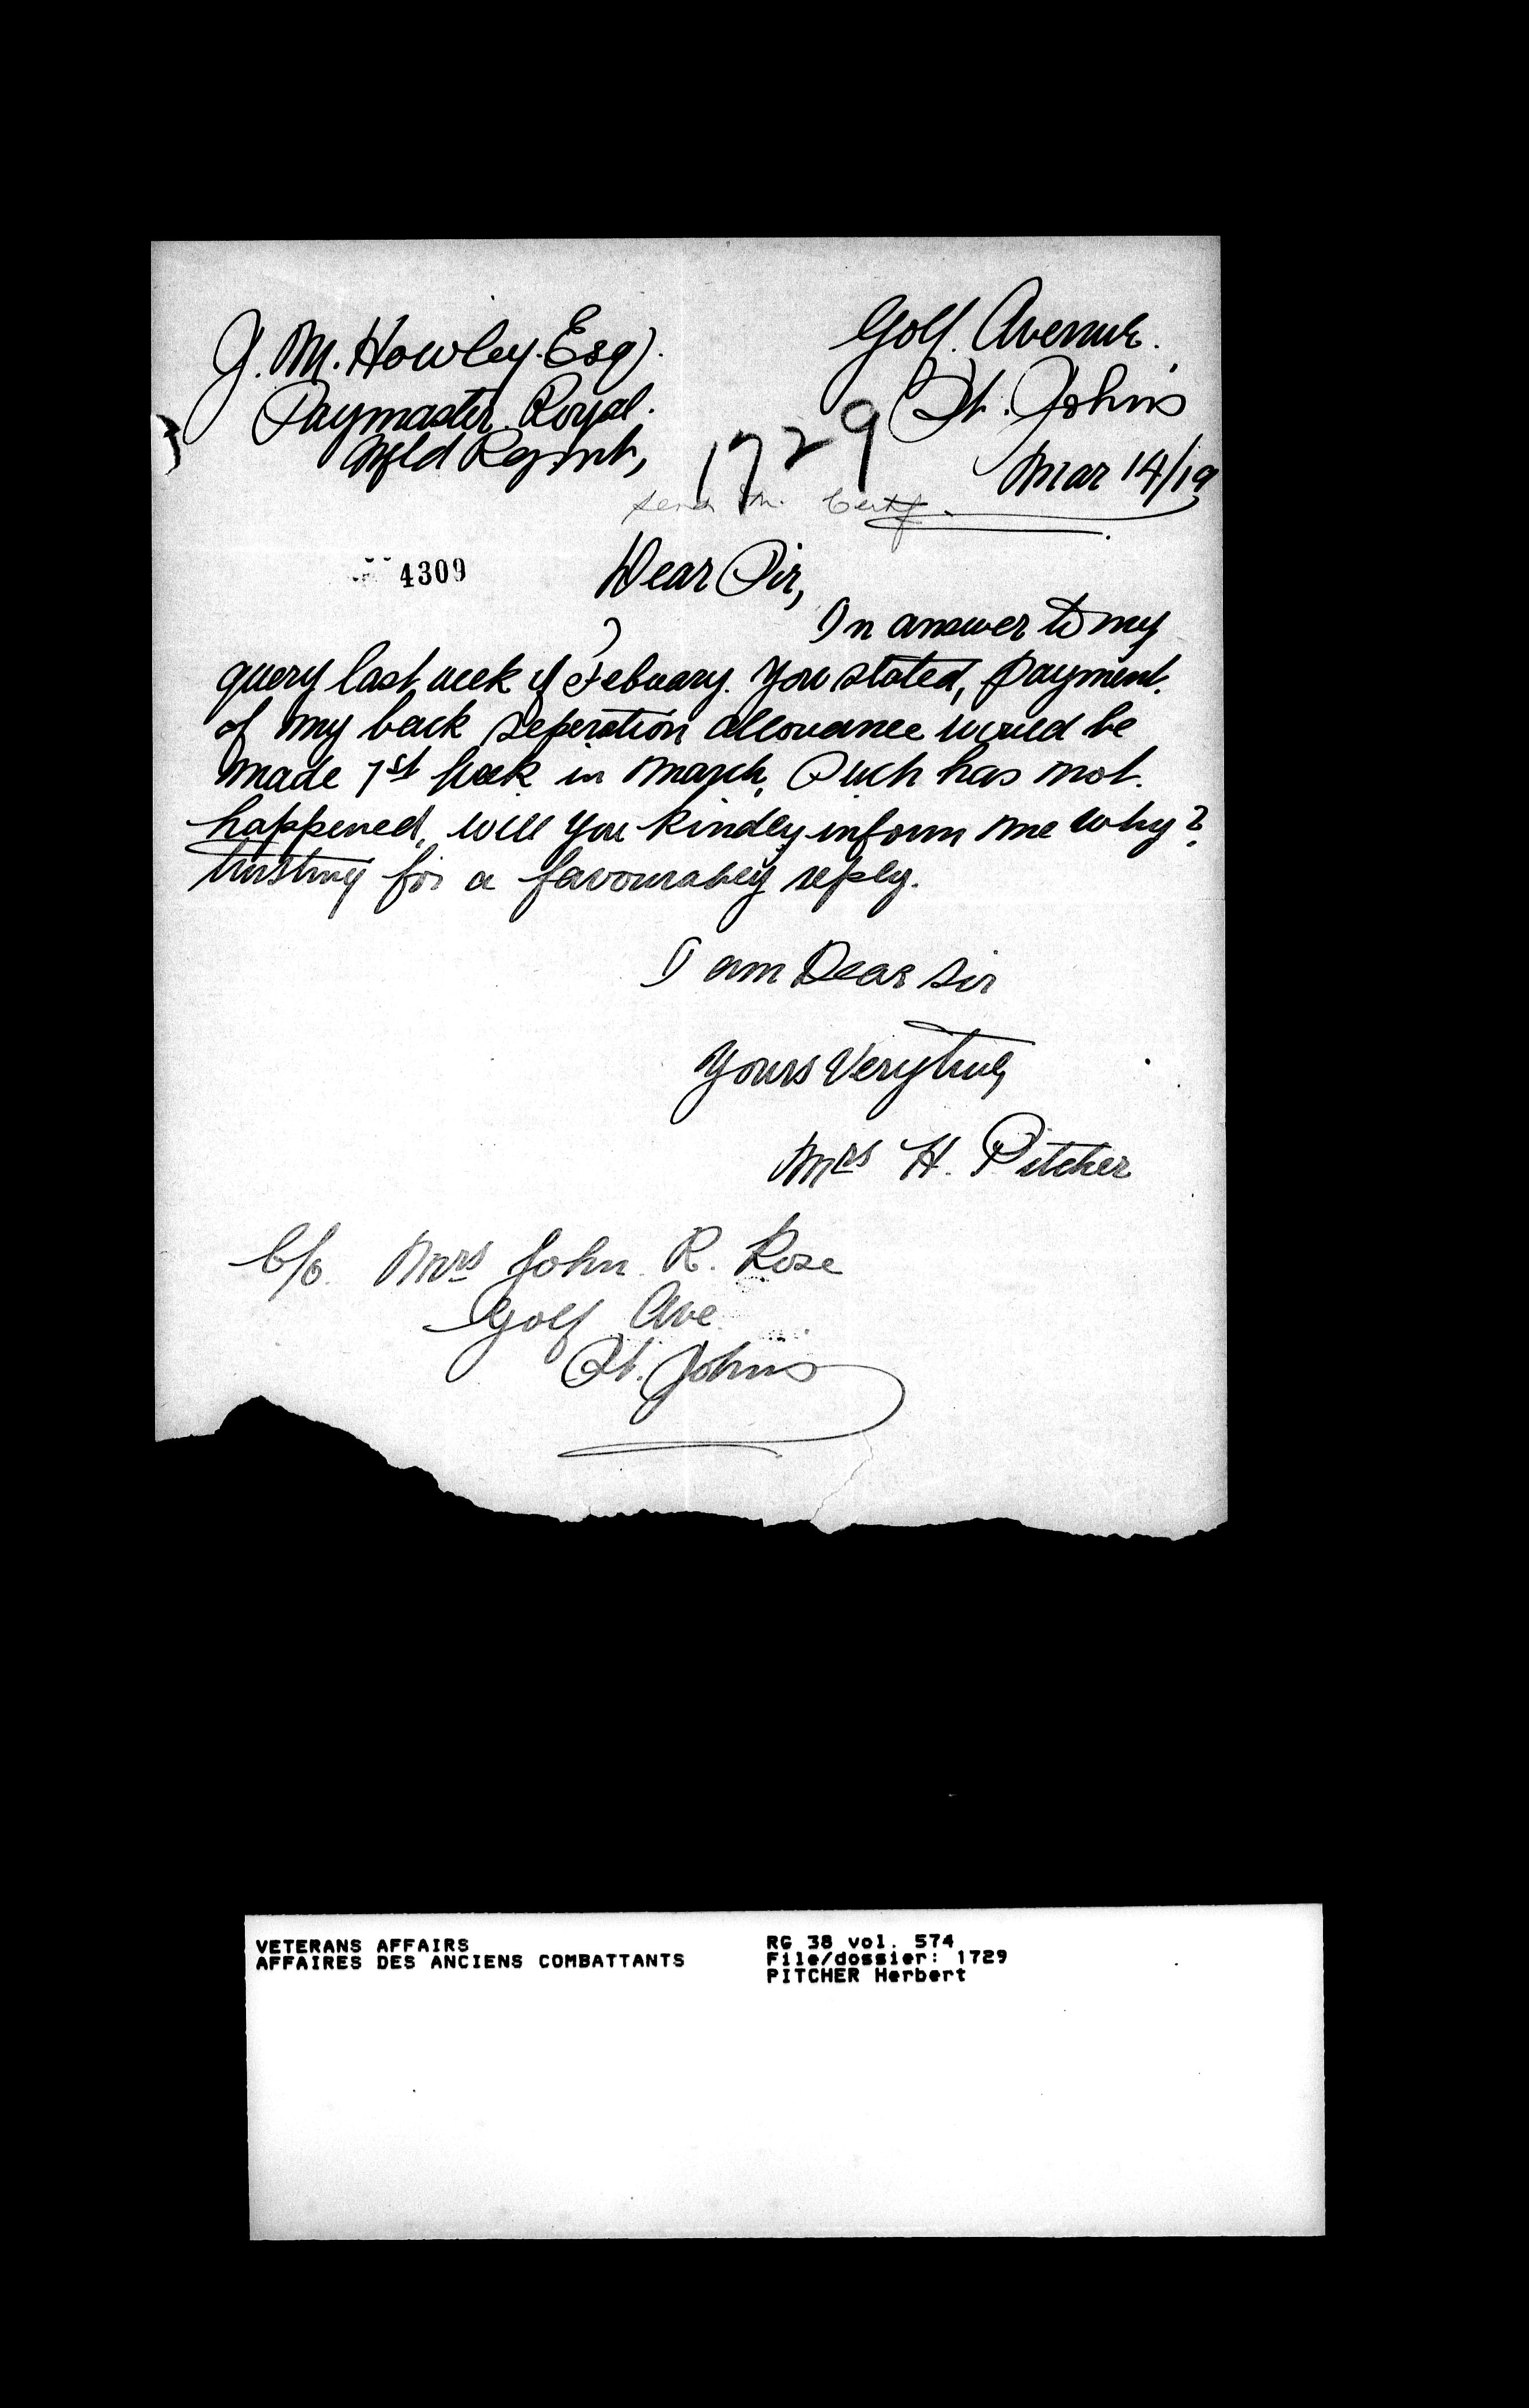 J. M. Howley. Esq).
Paymaster. Royal.
Nfld Regmt,
Golf. Avenue.
St. John's
Mar 14/19
1729
send m. Certf.
4309
Dear Sir,
In answer to my
query last week of Febuary. You stated, payment.
of my back seperation allowance would be
made 1st week in March, Such has not.
happened, will you kindly inform me why?
trusting for a favourabley reply.
I am Dear Sir
Yours Very truly
Mrs H. Pitcher
C/o. Mrs John. R. Rose
Golf Ave
St. Johns
VETERANS AFFAIRS
AFFAIRES DES ANCIENS COMBATTANTS
RG 38 vol. 574
File/dossier: 1729
PITCHER Herbert